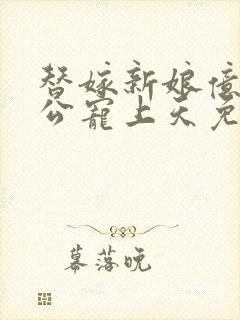 替嫁新娘億
公寵上天免
幕落晚